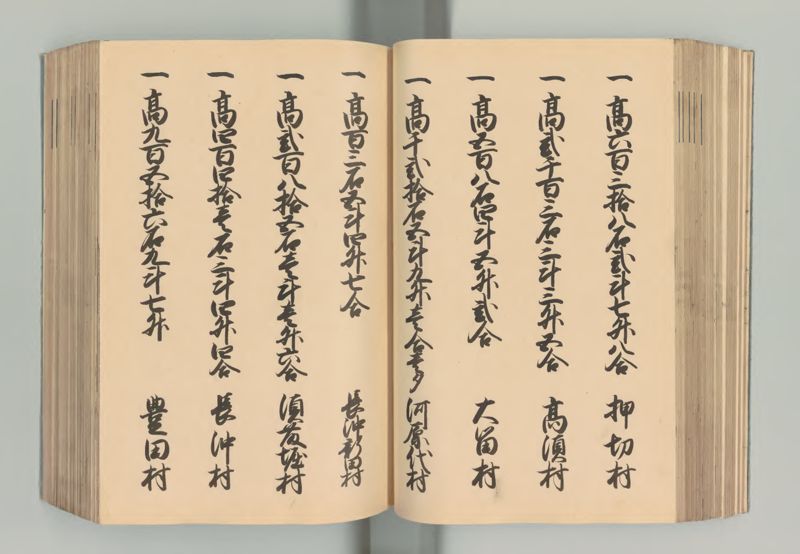 一高六百三拾八石弐斗七升八合 押切村
一高弐千百三石三斗三升五合 高須村
一高五百八石四斗五升弐合 大留村
一高千弐拾石五斗九升壱合壱夕 河原代村
一高百三石五斗四升七合 長沖新田村
一高弐百八拾五石壱斗壱升六合 須藤堀村
一高四百四拾壱石三斗四升四合 長沖村
一高九百五拾六石九斗七升 豊田村